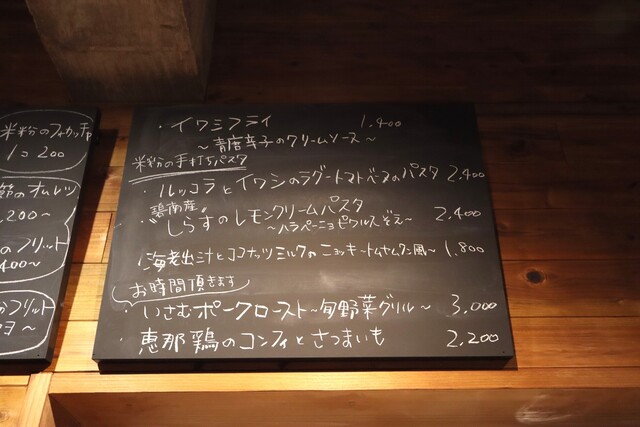 米粉のフォカッチャ
1コ 200
節のオムレツ
,200～
のフリット
400～
フリット
ヨ～
・イワシフライ 1.400
～青唐辛子のクリームソース～
米粉の手打ちパスタ
・ルッコラとイワシのラグートマトベースのパスタ 2.400
碧南産
・しらすのレモンクリームパスタ 2.400
～ハラペーニョピクルスぞえ～
海老出汁とココナッツミルクのニョッキ～トムヤムクン風～ 1.800
お時間頂きます
・いさむポークロースト～旬野菜グリル～ 3.000
・恵那鶏のコンフィとさつまいも 2.200